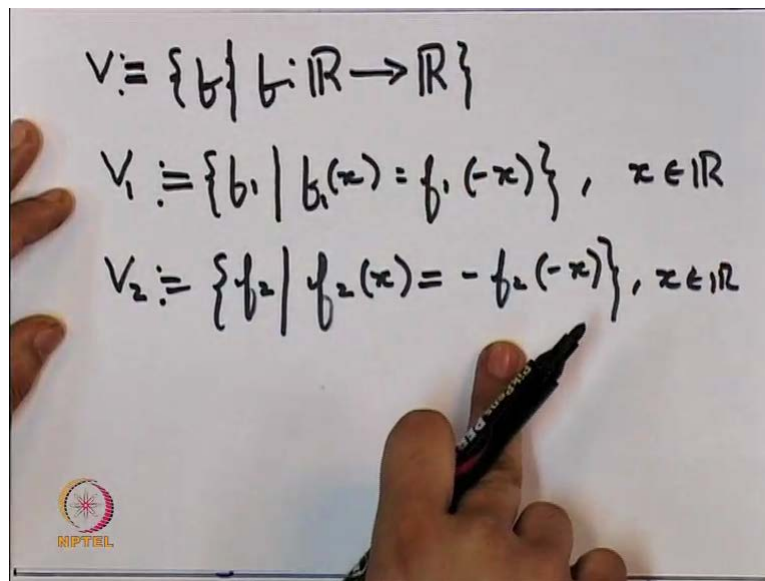 V := {f | f : ℝ → ℝ}
V₁ := {f₁ | f₁(x) = f₁(-x)}, x ∈ ℝ
V₂ := {f₂ | f₂(x) = -f₂(-x)}, x ∈ ℝ
PikPens
NPTEL